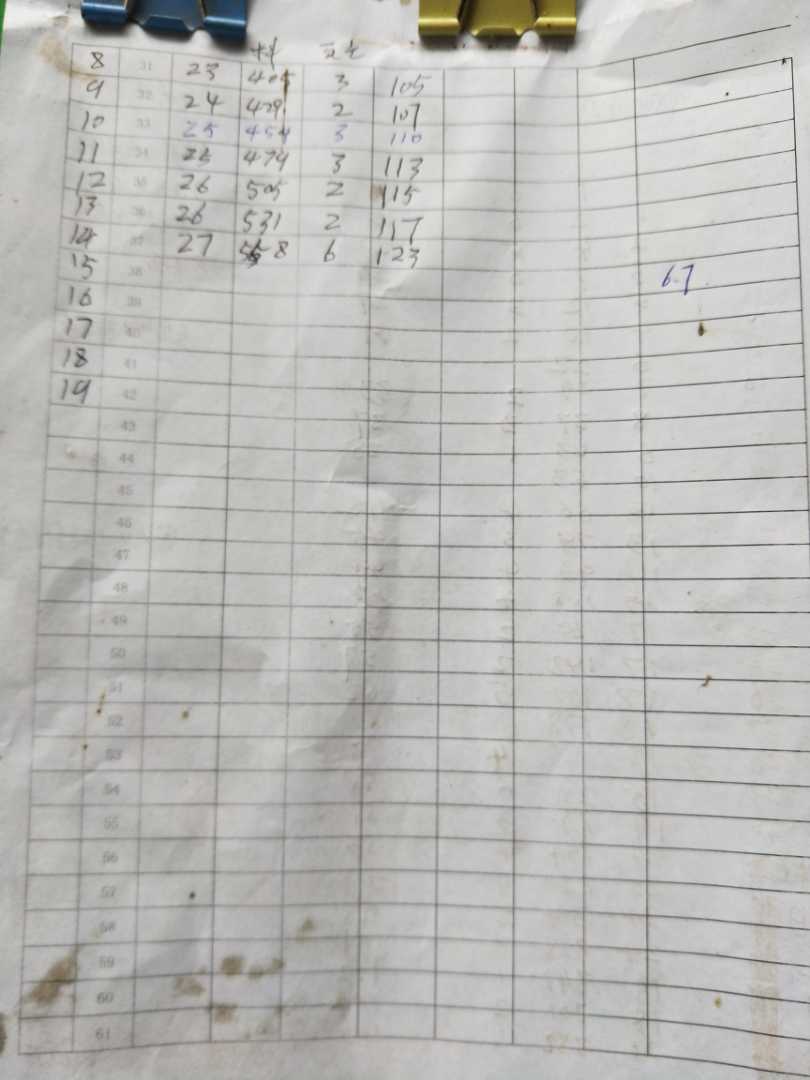 料 死亡
8 31 23 405 3 105
9 32 24 429 2 107
10 33 25 454 3 110
11 34 25 479 3 113
12 35 26 505 2 115
13 36 26 531 2 117
14 37 27 558 6 123
15 38 6.7
16 39
17 40
18 41
19 42
43
44
45
46
47
48
49
50
51
52
53
54
55
56
57
58
59
60
61